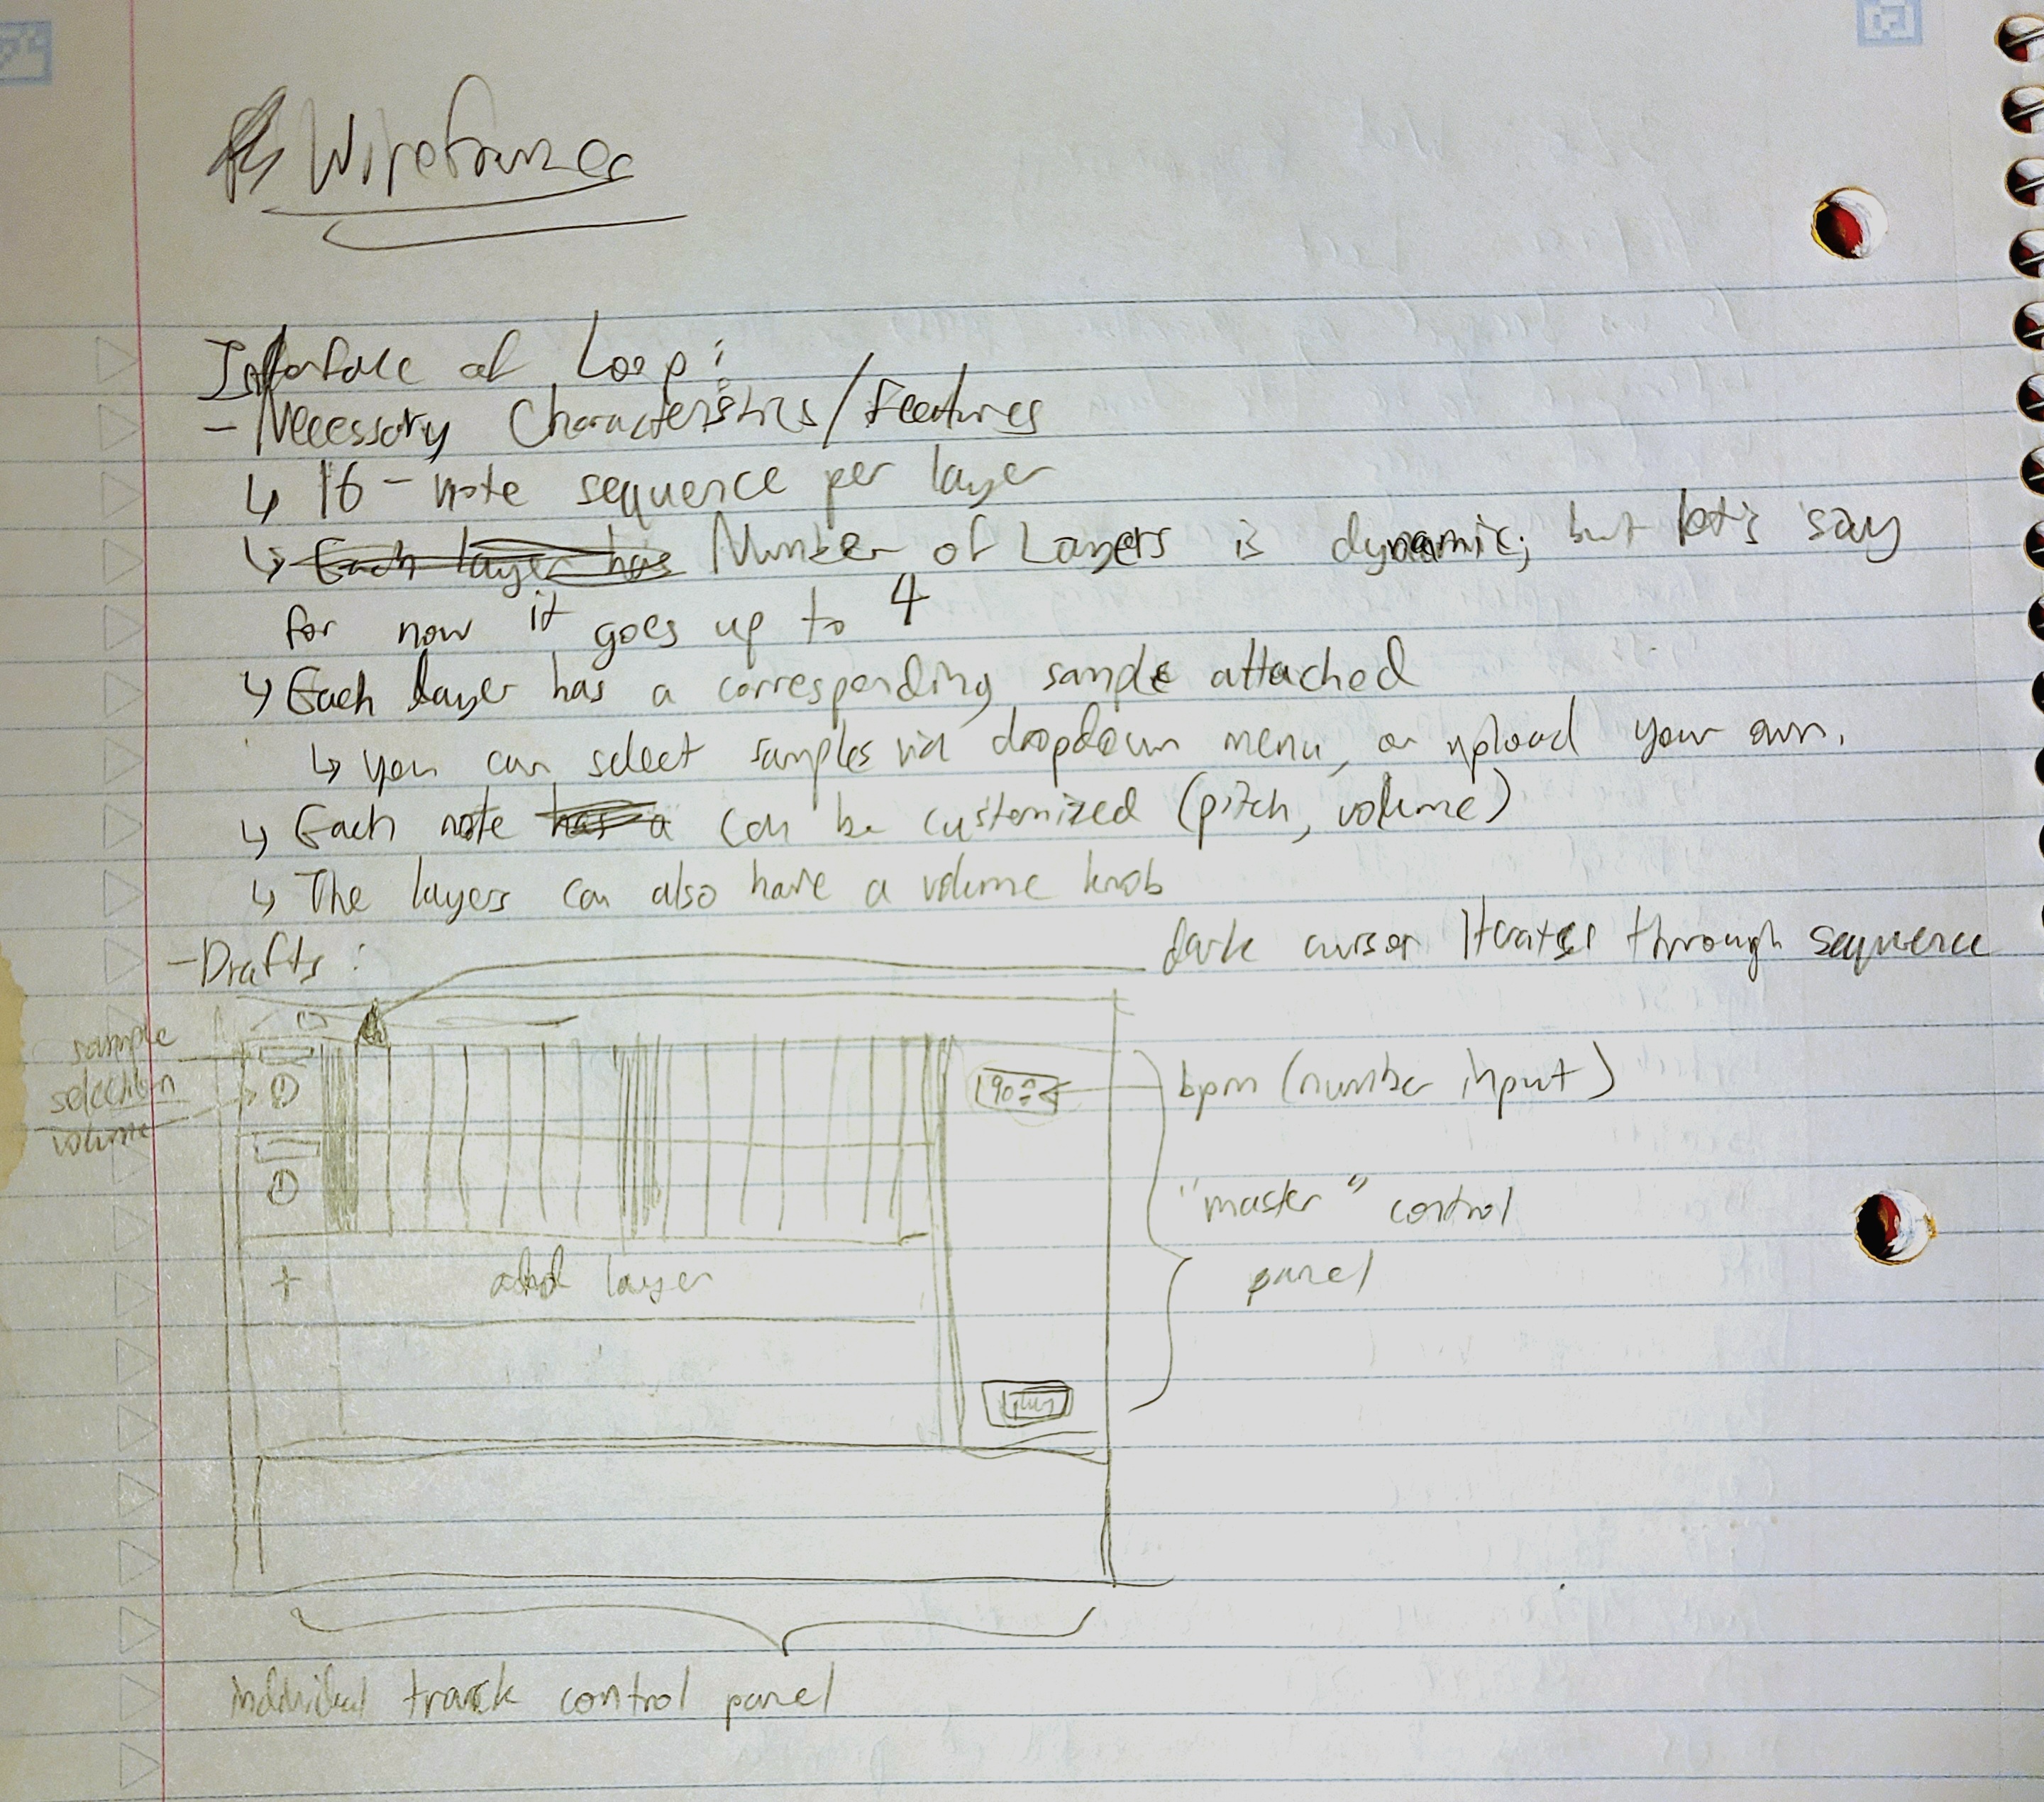 Wireframes
Interface of Loop:
- Necessary Characteristics/Features
↳ 16-note sequence per layer
↳ Each layer has Number of Layers is dynamic, but let's say
for now it goes up to 4
↳ Each layer has a corresponding sample attached
↳ you can select samples via dropdown menu, or upload your own.
↳ Each note has a can be customized (pitch, volume)
↳ The layers can also have a volume knob
- Drafts:
dark cursor iterates through sequence
sample
selection
volume
90
bpm (number input)
"master" control
panel
+ add layer
individual track control panel